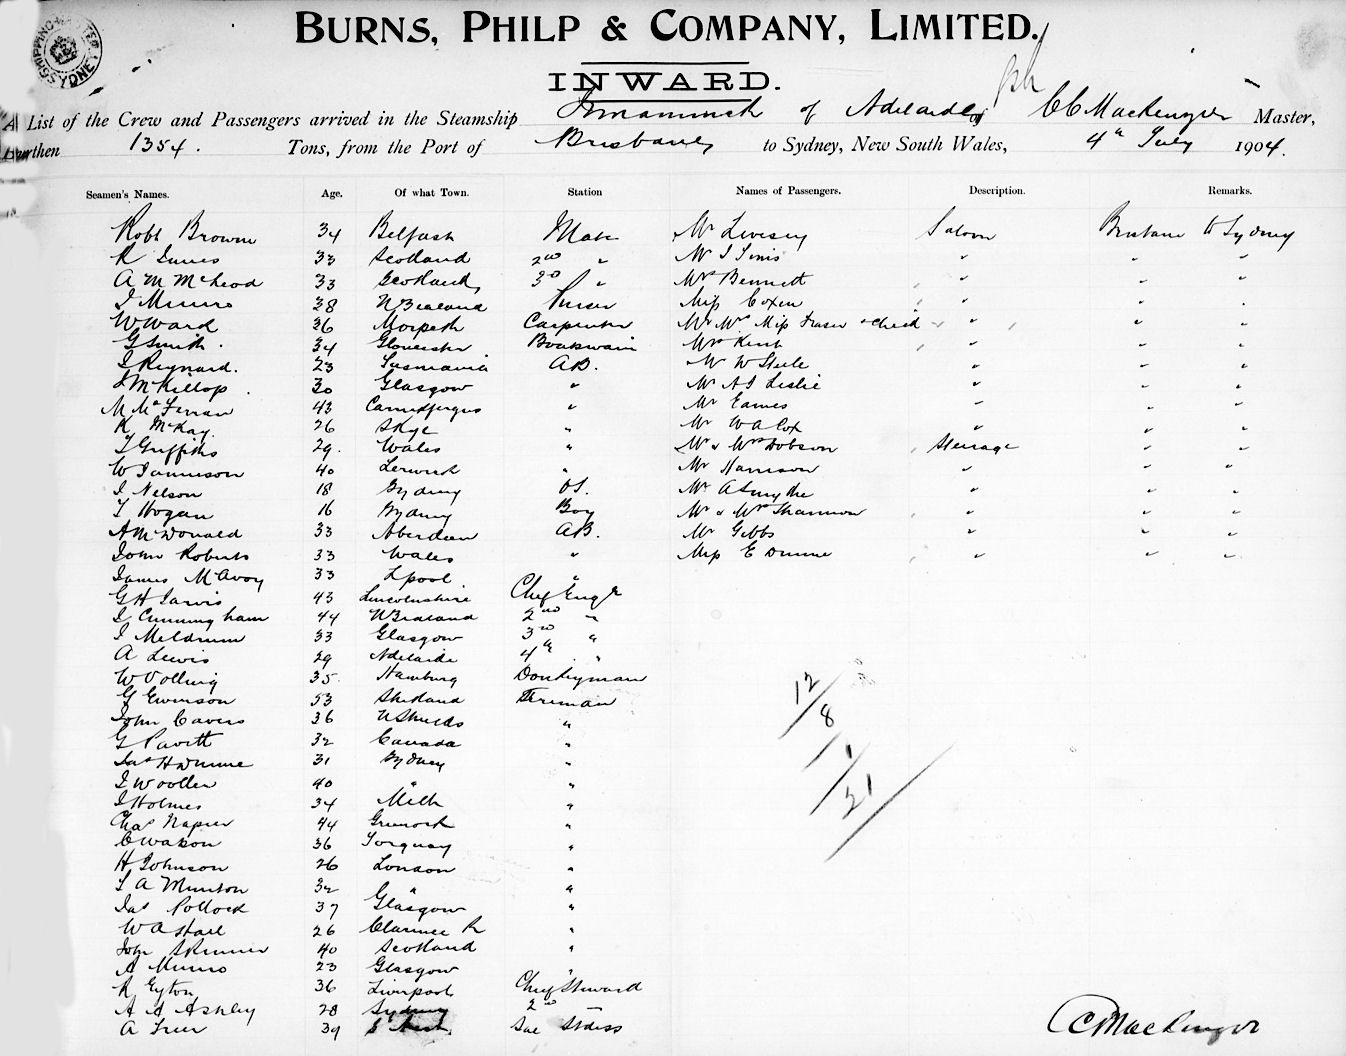 SHIPPING MASTER
SYDNEY
BURNS, PHILP & COMPANY, LIMITED.
INWARD.
A List of the Crew and Passengers arrived in the Steamship Innamincka of Adelaide of C C MacKenzie Master,
Burthen 1354. Tons, from the Port of Brisbane to Sydney, New South Wales, 4th July 1904.
Seamen's Names. Age. Of what Town. Station Names of Passengers. Description. Remarks.
Robt Browne 34 Belfast Mate Mr Livesey Saloon Brisbane to Sydney
R Innes 33 Scotland 2nd " Mr " " "
A M McLeod 33 Scotland 3rd " Mrs Bennett " " "
J Munro 38 N Zealand Purser Miss Coxen " " "
W Ward 36 Morpeth Carpenter Mr Mrs Miss Fraser & child " " "
G Smith. 34 Gloucester Boatswain Mrs Kent " " "
J Reynard. 23 Tasmania AB. Mr W Steele " " "
J McKillop. 30 Glasgow " Mr A J Leslie " " "
M McFerran 43 Carrickfergus " Mr Eames " " "
R McKay. 26 Skye " Mr W A Cox " " "
T Griffiths 29. Wales " Mr & Mrs Hobson Steerage " "
W Jamieson 40 Lerwick " Mr Harrison " " "
J Nelson 18 Sydney OS. Mr A Smythe " " "
T Hogan 16 Sydney Boy Mr & Mrs Shannon " " "
A McDonald 33 Aberdeen AB. Mr Gibbs " " "
John Roberts 33 Wales " Miss E Dunne " " "
James McAvoy 33 Lpool "
G H Jarvis 43 Lincolnshire Chief Engr
J Cunningham 44 N Zealand 2nd "
J Meldrum 33 Glasgow 3rd "
A Lewis 29 Adelaide 4th "
W Vollwig 35 Hamburg Donkeyman
G Ewenson 53 Shetland Fireman
John Cavers 36 N Shields "
G Pavitt 32 Canada "
Jas H Dunne 31 Sydney "
J Woollen 40 " "
J Holmes 34 Melb "
Chas Napier 44 Greenock "
C Watson 36 Torquay "
H Johnson 26 London "
T A Munton 32 " "
Jas Pollock 37 Glasgow "
W A Hall 26 Clarence R "
John Skinner 40 Scotland "
A Munro 23 Glasgow "
R Eyton 36 Liverpool Chief Steward
A A Ashley 28 Sydney 2nd "
A Freer 39 Stdess
12
8
1
21
C C MacKenzie